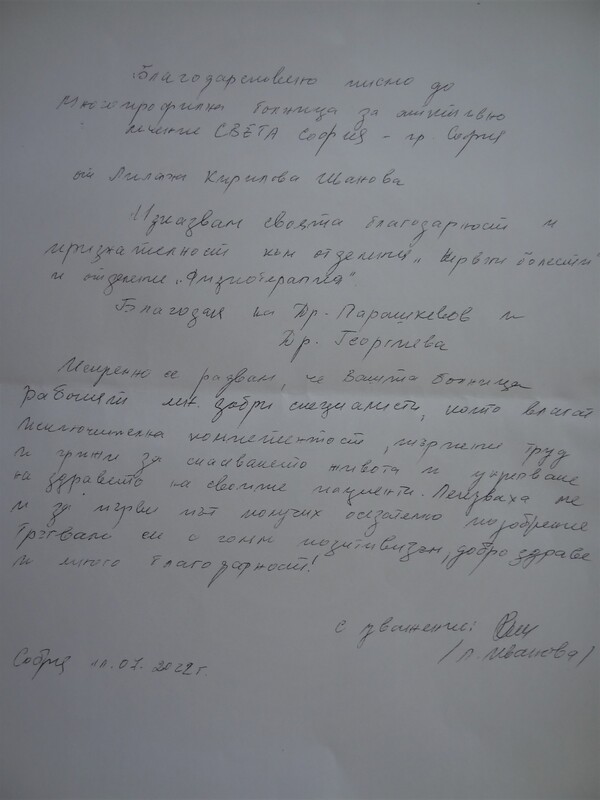 Благодарствено писмо до
Многопрофилна болница за активно
лечение СВЕТА София - гр. София
от Лиляна Кирилова Иванова
Изказвам своята благодарност и
признателност към отделения „Нервни болести"
и отделение „Физиотерапия".
Благодаря на Др. Парашкевов и
Др. Георгиева
Искренно се радвам, че Вашта болница
работят мн. добри специалисти, които влагат
изключителна компетентост, търпение труд
и грижи за спасяването живота и укрепване
на здравето на своите пациенти. Лекуваха ме
и за първи път получих осезателно подобрение
Тръгвам си с голям позитивизъм, добро здраве
и много благодарност!
с уважение:
/Л. Иванова/
София 07.2022г.